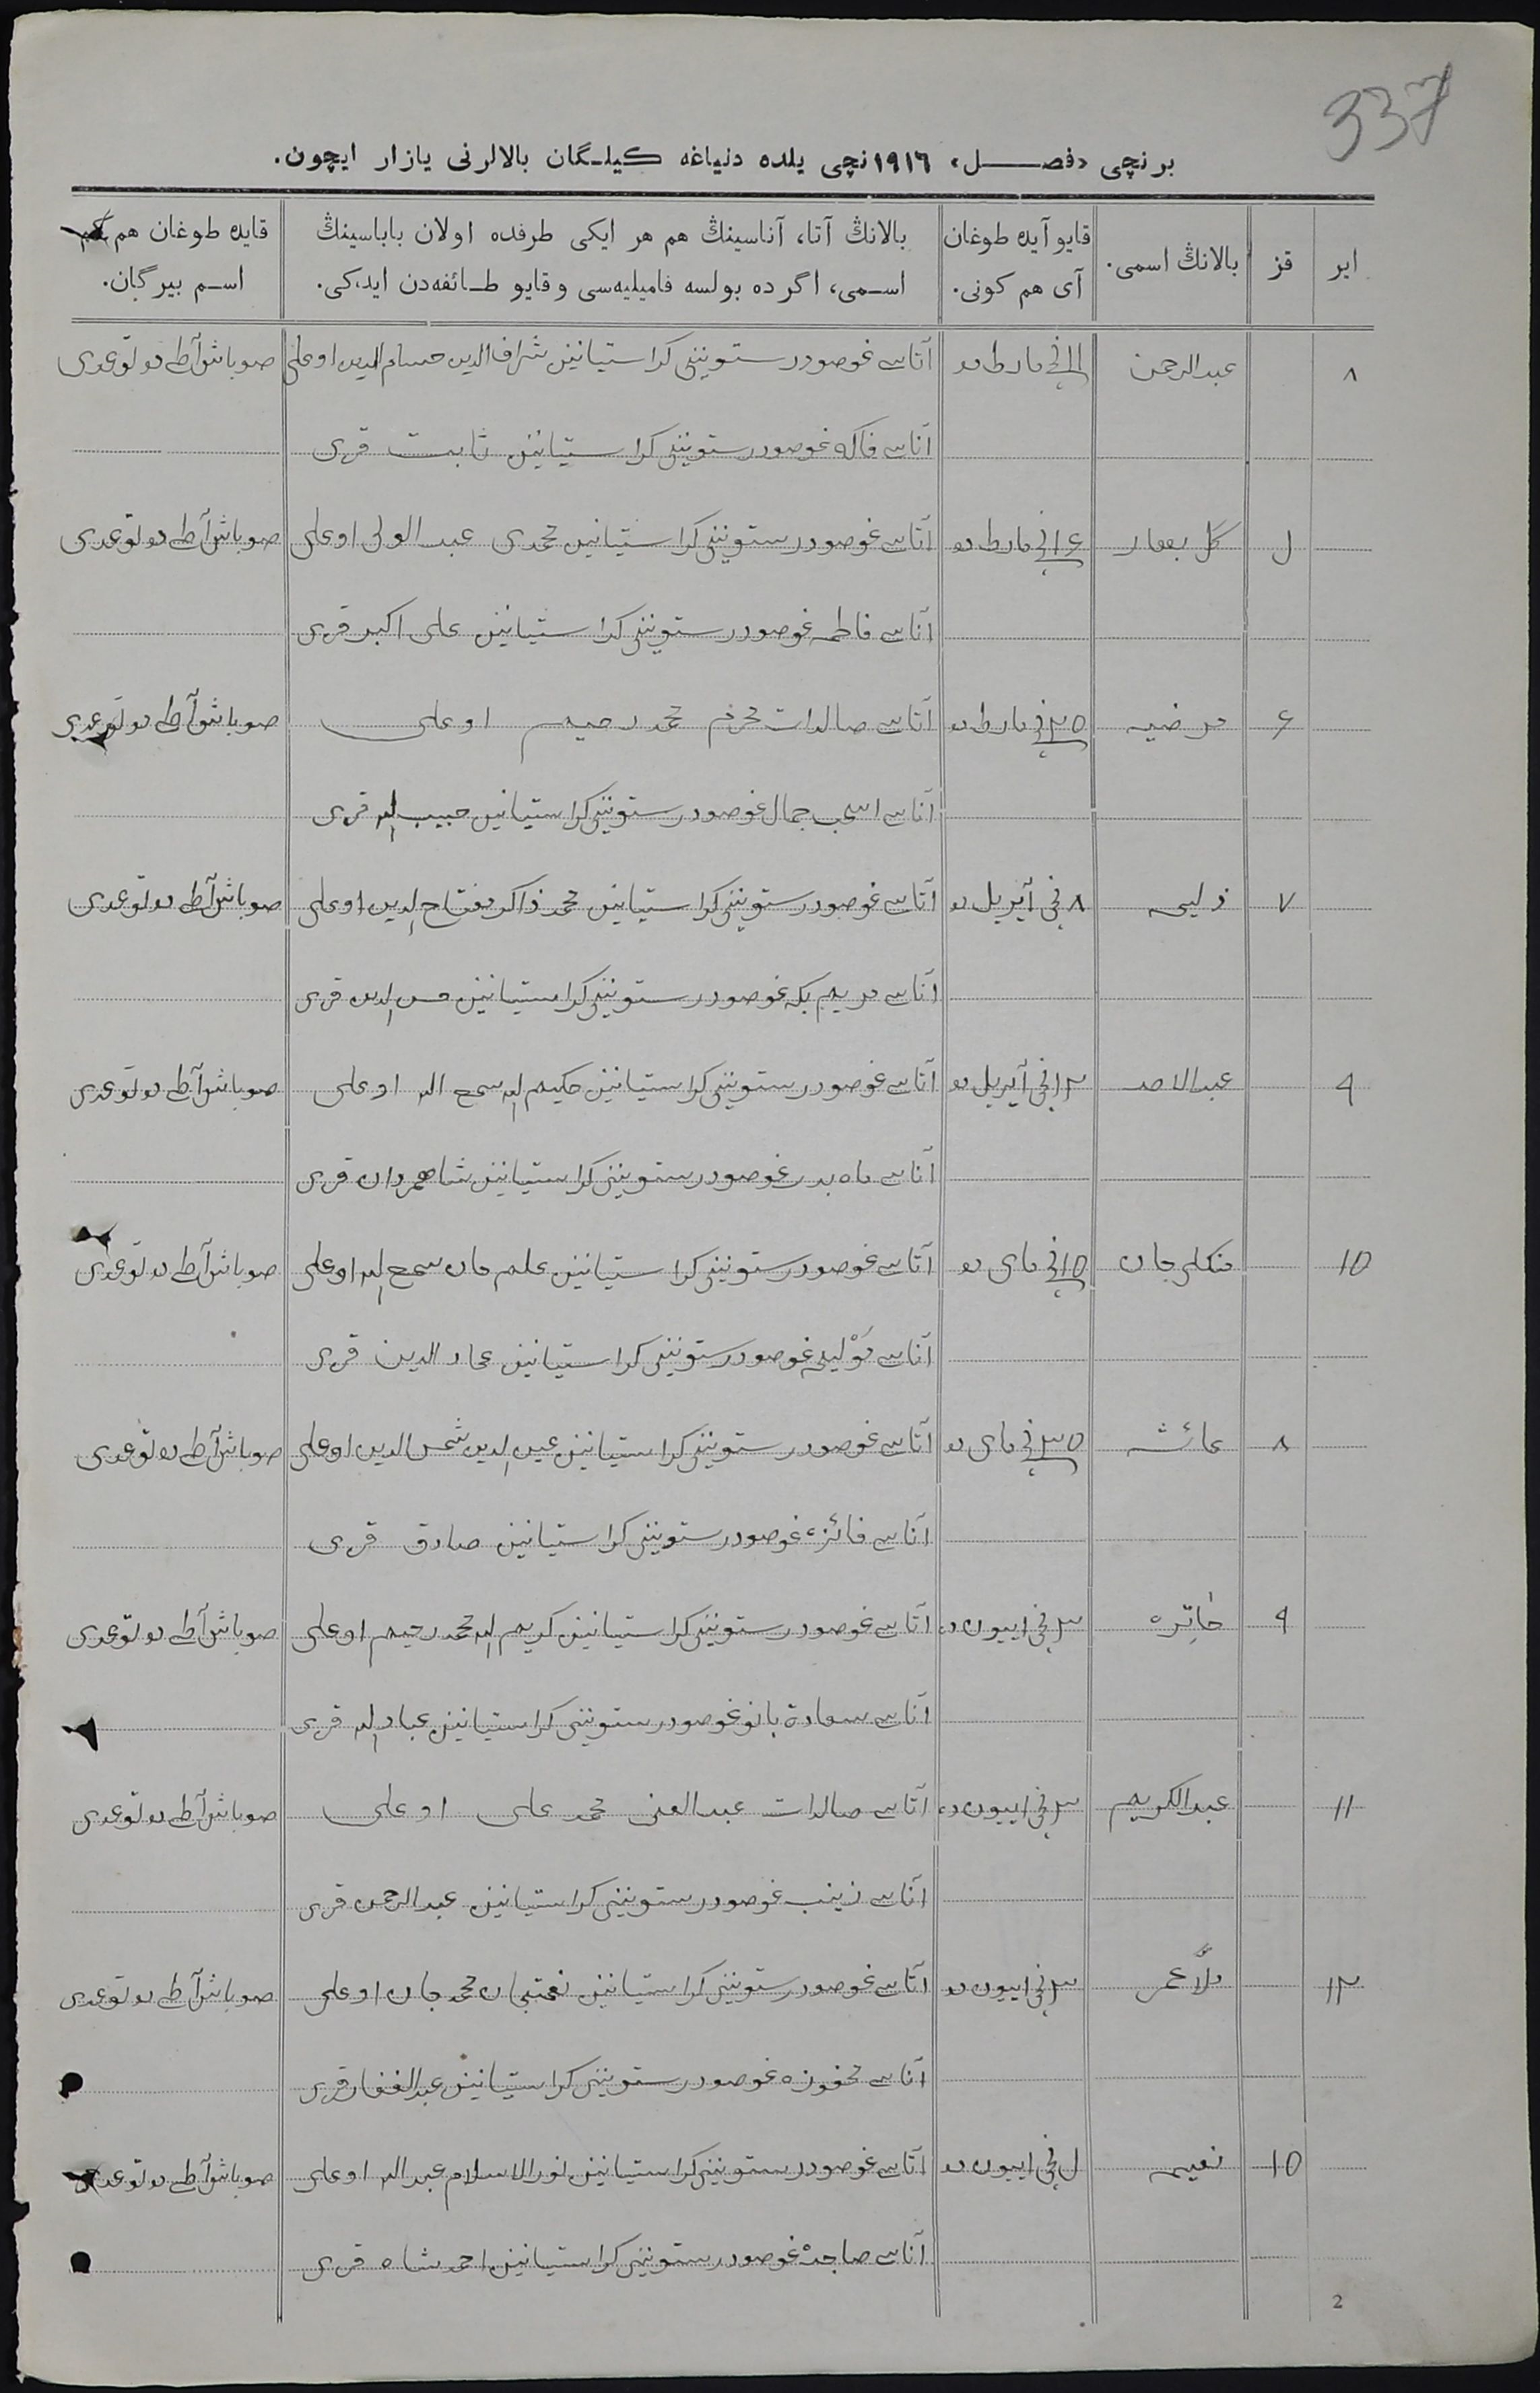 337
برنچی «فصل» ۱۹۱٦نچی یلده دنیاغه کیلگان بالالرنی یازار ایچون.
ایر
قز
بالانڭ اسمی.
قایو آیده طوغان
آی هم کونی.
بالانڭ آتا، آناسینڭ هم هر ایکی طرفده اولان باباسینڭ
اسمی، اگرده بولسه فامیلیه‌سی و قایو طائفه‌دن ایدکی.
قایده طوغان هم کم
اسم بیرگان.
۸ عبدالرحمن ۱۱نچی مارط ده آتاسی غوصودرستویننی کراستیانین شراف الدین حسام الدین اوغلی صوباش آطی ده توغدی
آناسی غوصودرستویننی کراستیانین ثابت قزی
گل بهار نچی مارط ده آتاسی غوصودرستویننی کراستیانین محمدی عبدالولی اوغلی صوباش آطی ده توغدی
آناسی فاطمه غوصودرستویننی کراستیانین علی اکبر قزی
مرضیه نچی مارط ده آتاسی صالدات محرم محمد رحیم اوغلی صوباش آطی ده توغدی
آناسی جمال غوصودرستویننی کراستیانین حبیب الله قزی
۷ ۸ نچی آپریل ده آتاسی غوصودرستویننی کراستیانین محمد ذاکر مفتاح الدین اوغلی صوباش آطی ده توغدی
آناسی مریم بکه غوصودرستویننی کراستیانین قزی
۹ عبدالاحد نچی آپریل ده آتاسی غوصودرستویننی کراستیانین حکیم الله سمیع الله اوغلی صوباش آطی ده توغدی
آناسی ماه بدر غوصودرستویننی کراستیانین شاهمردان قزی
10 نچی مای ده آتاسی غوصودرستویننی کراستیانین سمیع الله اوغلی صوباش آطی ده توغدی
آناسی غوصودرستویننی کراستیانین عماد الدین قزی
۸ عائشه نچی مای ده آتاسی غوصودرستویننی کراستیانین عین الدین شمس الدین اوغلی صوباش آطی ده توغدی
آناسی فائزه غوصودرستویننی کراستیانین صادق قزی
۹ نچی اییون ده آتاسی غوصودرستویننی کراستیانین کریم الله محمد رحیم اوغلی صوباش آطی ده توغدی
آناسی سعادة بانو غوصودرستویننی کراستیانین عباد الله قزی
۱۱ عبدالکریم نچی اییون ده آتاسی صالدات عبدالغنی محمد علی اوغلی صوباش آطی ده توغدی
آناسی زینب غوصودرستویننی کراستیانین عبدالرحمن قزی
۱۲ ملا عمر نچی اییون ده آتاسی غوصودرستویننی کراستیانین نعمتجان محمد جان اوغلی صوباش آطی ده توغدی
آناسی محفوزه غوصودرستویننی کراستیانین عبدالغفار قزی
10 نعیمه نچی اییون ده آتاسی غوصودرستویننی کراستیانین نورالاسلام عبدالله اوغلی صوباش آطی ده توغدی
آناسی صاجده غوصودرستویننی کراستیانین احمد شاه قزی
2